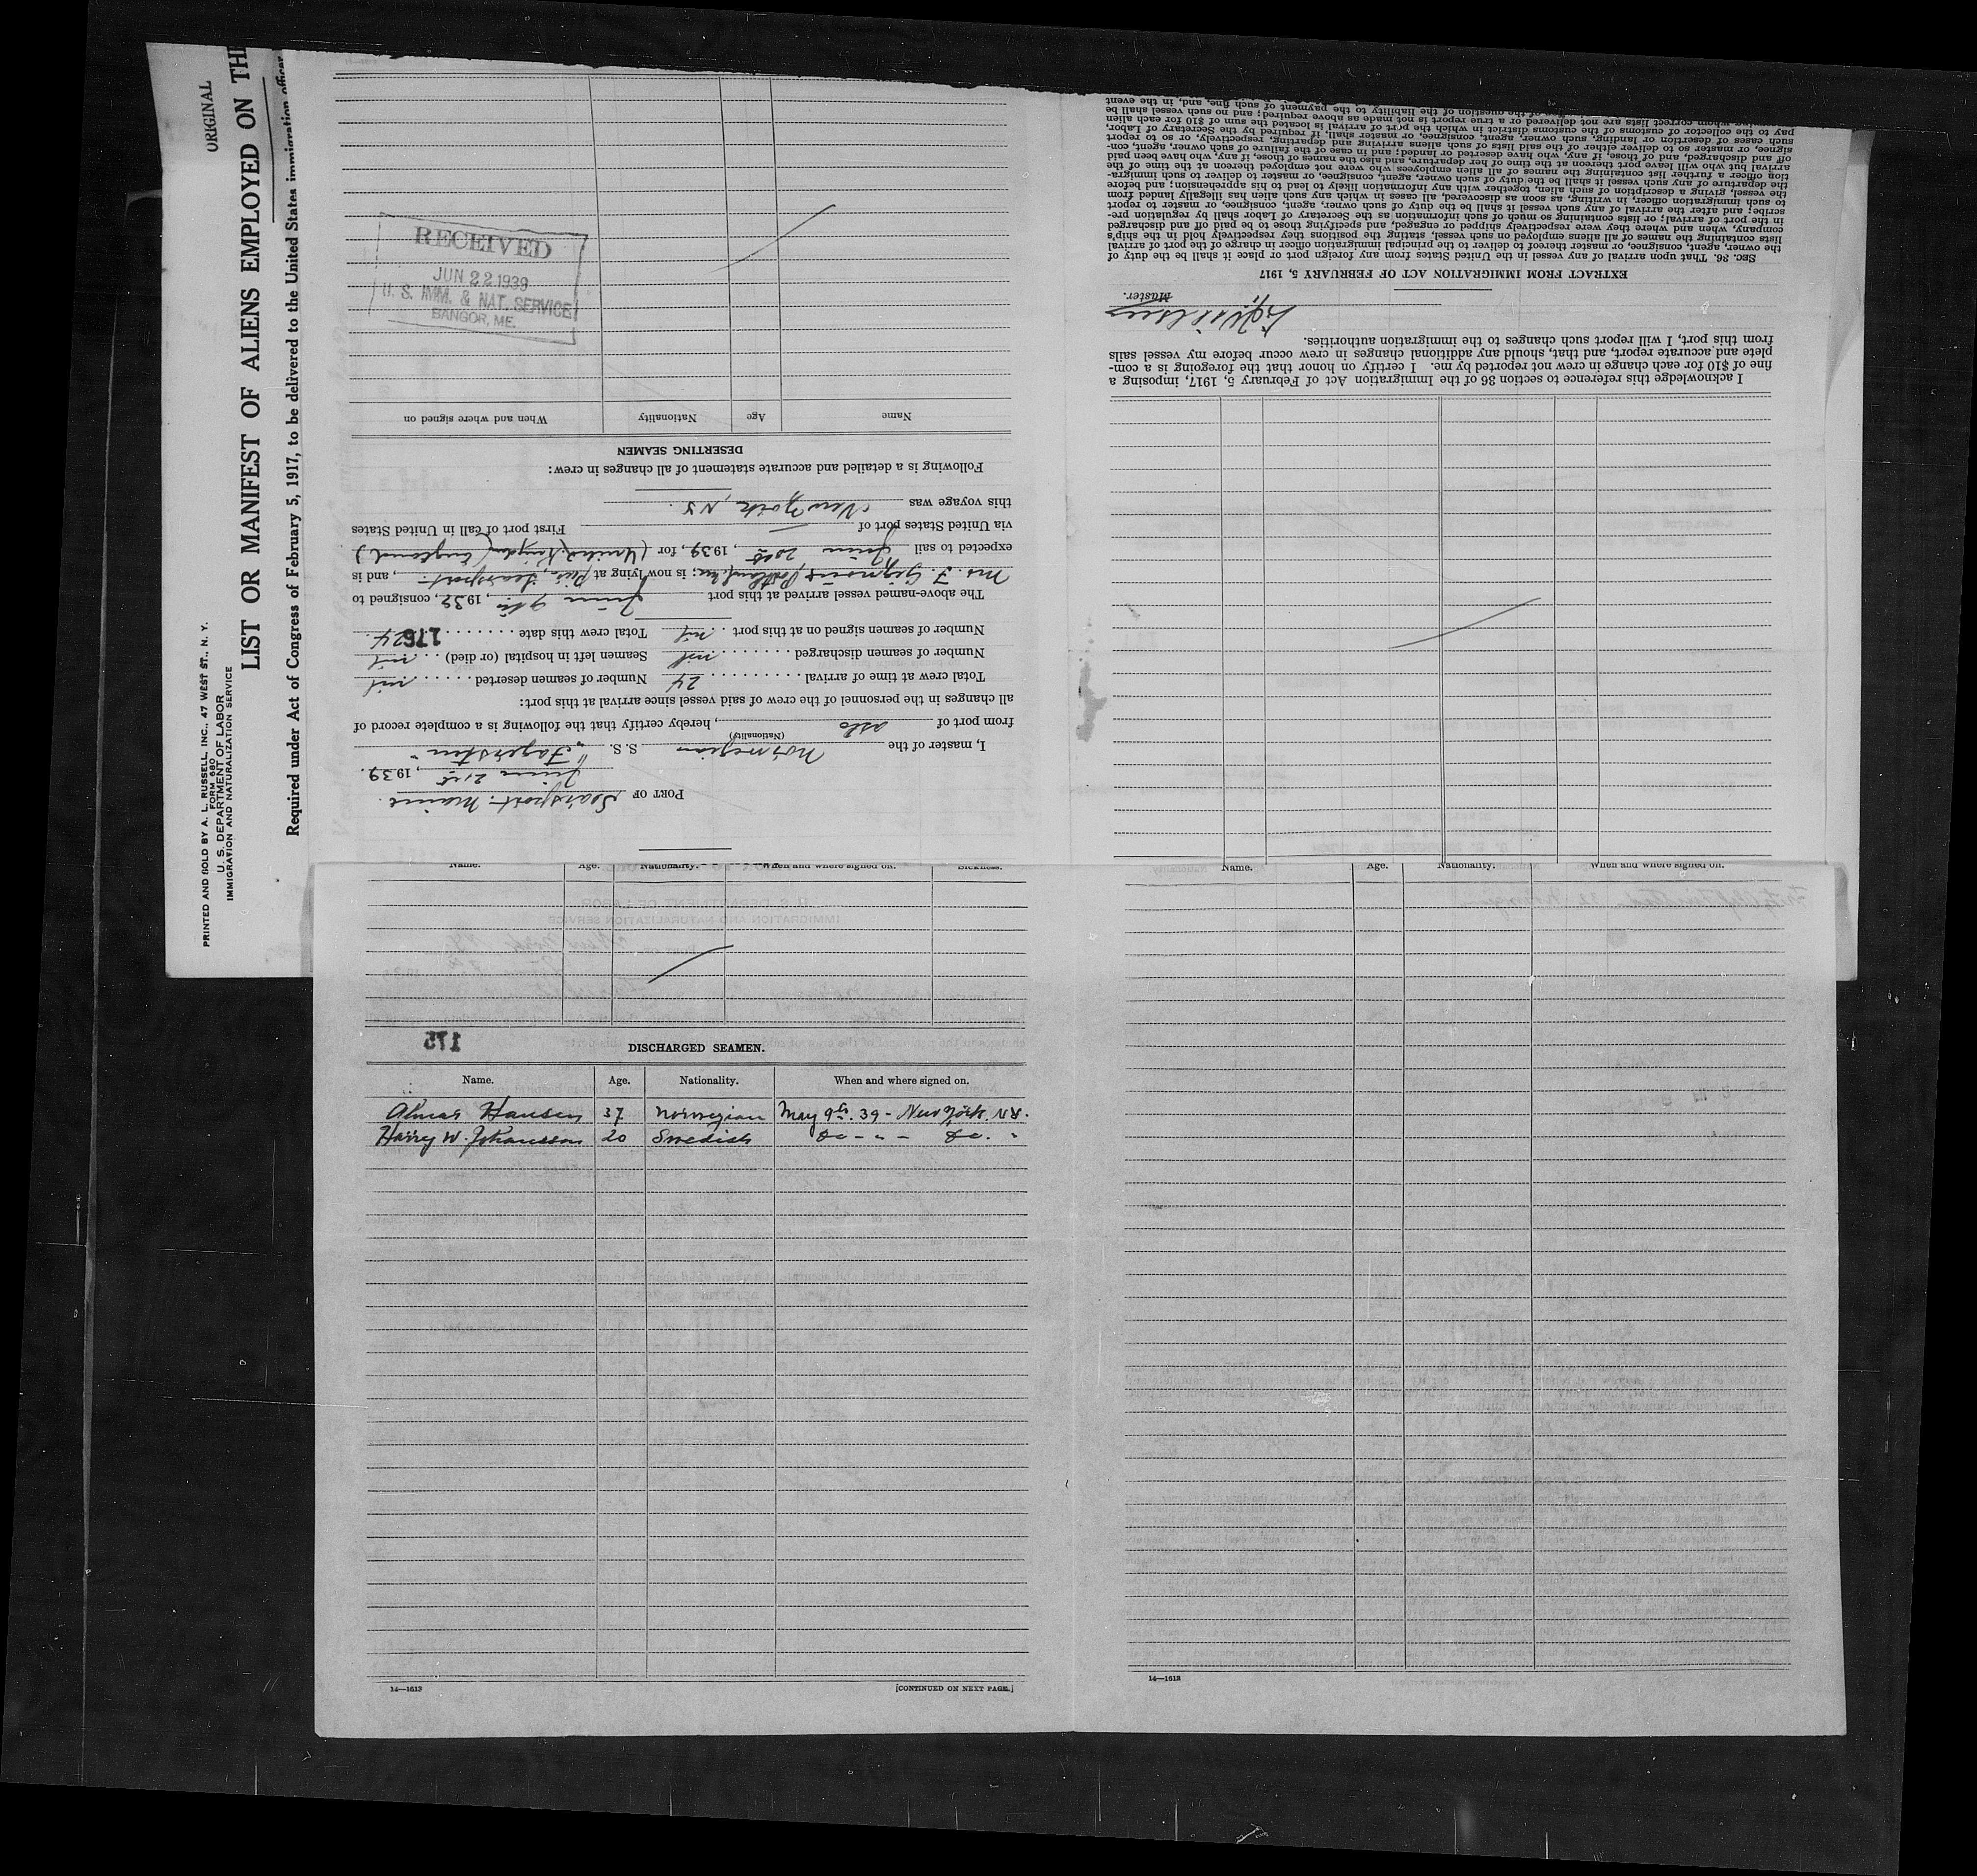 ORIGINAL
LIST OR MANIFEST OF ALIENS EMPLOYED ON THE
Required under Act of Congress of February 5, 1917, to be delivered to the United States immigration officer
PRINTED AND SOLD BY A. L. RUSSELL, INC., 47 WEST ST., N. Y.
FORM 680
U. S. DEPARTMENT OF LABOR
IMMIGRATION AND NATURALIZATION SERVICE
PORT OF Searsport. Maine.
June 21st, 1939.
I, master of the Norwegian S. S. "Fagersten"
(Nationality)
from port of Oslo, hereby certify that the following is a complete record of
all changes in the personnel of the crew of said vessel since arrival at this port:
Total crew at time of arrival 24 Number of seamen deserted nil
Number of seamen discharged nil Seamen left in hospital (or died) nil
Number of seamen signed on at this port nil Total crew this date 24.
176
The above-named vessel arrived at this port June 9th, 1939, consigned to
Portland, Me; is now lying at Pier, Searsport., and is
expected to sail June 20th, 1939, for (United Kingdom (England)
via United States port of — First port of call in United States
this voyage was New York, N.Y.
Following is a detailed and accurate statement of all changes in crew:
DESERTING SEAMEN
Name Age Nationality When and where signed on
RECEIVED
JUN 22 1939
U. S. IMM. & NAT. SERVICE
BANGOR, ME.
I acknowledge this reference to section 36 of the Immigration Act of February 5, 1917, imposing a
fine of $10 for each change in crew not reported by me. I certify on honor that the foregoing is a com-
plete and accurate report, and that, should any additional changes in crew occur before my vessel sails
from this port, I will report such changes to the immigration authorities.
Master.
EXTRACT FROM IMMIGRATION ACT OF FEBRUARY 5, 1917
SEC. 36. That upon arrival of any vessel in the United States from any foreign port or place it shall be the duty of
the owner, agent, consignee, or master thereof to deliver to the principal immigration officer in charge of the port of arrival
lists containing the names of all aliens employed on such vessel, stating the positions they respectively hold in the ship's
company, when and where they were respectively shipped or engaged, and specifying those to be paid off and discharged
in the port of arrival; or lists containing so much of such information as the Secretary of Labor shall by regulation pre-
scribe; and after the arrival of any such vessel it shall be the duty of such owner, agent, consignee, or master to report
to such immigration officer, in writing, as soon as discovered, all cases in which any such alien has illegally landed from
the vessel, giving a description of such alien, together with any information likely to lead to his apprehension; and before
the departure of any such vessel it shall be the duty of such owner, agent, consignee, or master to deliver to such immigra-
tion officer a further list containing the names of all alien employees who were not employed thereon at the time of the
arrival but who will leave port thereon at the time of her departure, and also the names of those, if any, who have been paid
off and discharged, and of those, if any, who have deserted or landed; and in case of the failure of such owner, agent, con-
signee, or master so to deliver either of the said lists of such aliens arriving and departing, respectively, or so to report
such cases of desertion or landing, such owner, agent, consignee, or master shall, if required by the Secretary of Labor,
pay to the collector of customs of the customs district in which the port of arrival is located the sum of $10 for each alien
concerning whom correct lists are not delivered or a true report is not made as above required; and no such vessel shall be
of the question of the liability to the payment of such fine, and, in the event
Name. Age. Nationality. When and where signed on. Sickness.
175
DISCHARGED SEAMEN.
Name. Age. Nationality. When and where signed on.
Hansen 37 Norwegian May 9th. 39 - New York. N.Y.
Harry W. Johansson 20 Swedish Do - " - Do. "
14—1613
[CONTINUED ON NEXT PAGE.]
Name. Age. Nationality. When and where signed on.
14—1613